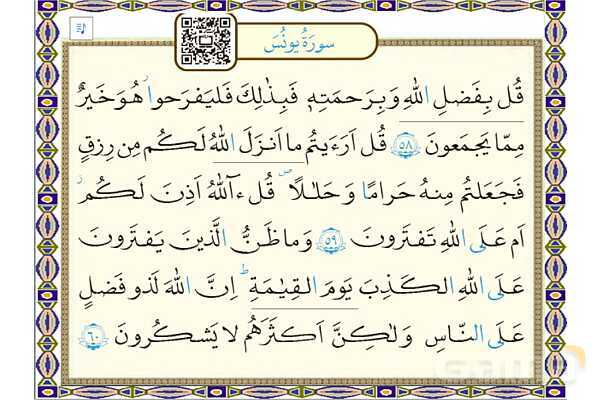 سورَةُ يونُسَ
قُل بِفَضلِ اللّٰهِ وَ بِرَحمَتِهٖ فَبِذٰلِكَ فَليَفرَحوا هُوَ خَيرٌ
مِمّا يَجمَعونَ ٥٨ قُل اَرَءَيتُم ما اَنزَلَ اللّٰهُ لَكُم مِن رِزقٍ
فَجَعَلتُم مِنهُ حَرامًا وَ حَلالًا قُل ءآللّٰهُ اَذِنَ لَكُم
اَم عَلَى اللّٰهِ تَفتَرونَ ٥٩ وَ ما ظَنُّ الَّذينَ يَفتَرونَ
عَلَى اللّٰهِ الكَذِبَ يَومَ القِيٰمَةِ اِنَّ اللّٰهَ لَذو فَضلٍ
عَلَى النّاسِ وَلٰكِنَّ اَكثَرَهُم لا يَشكُرونَ ٦٠